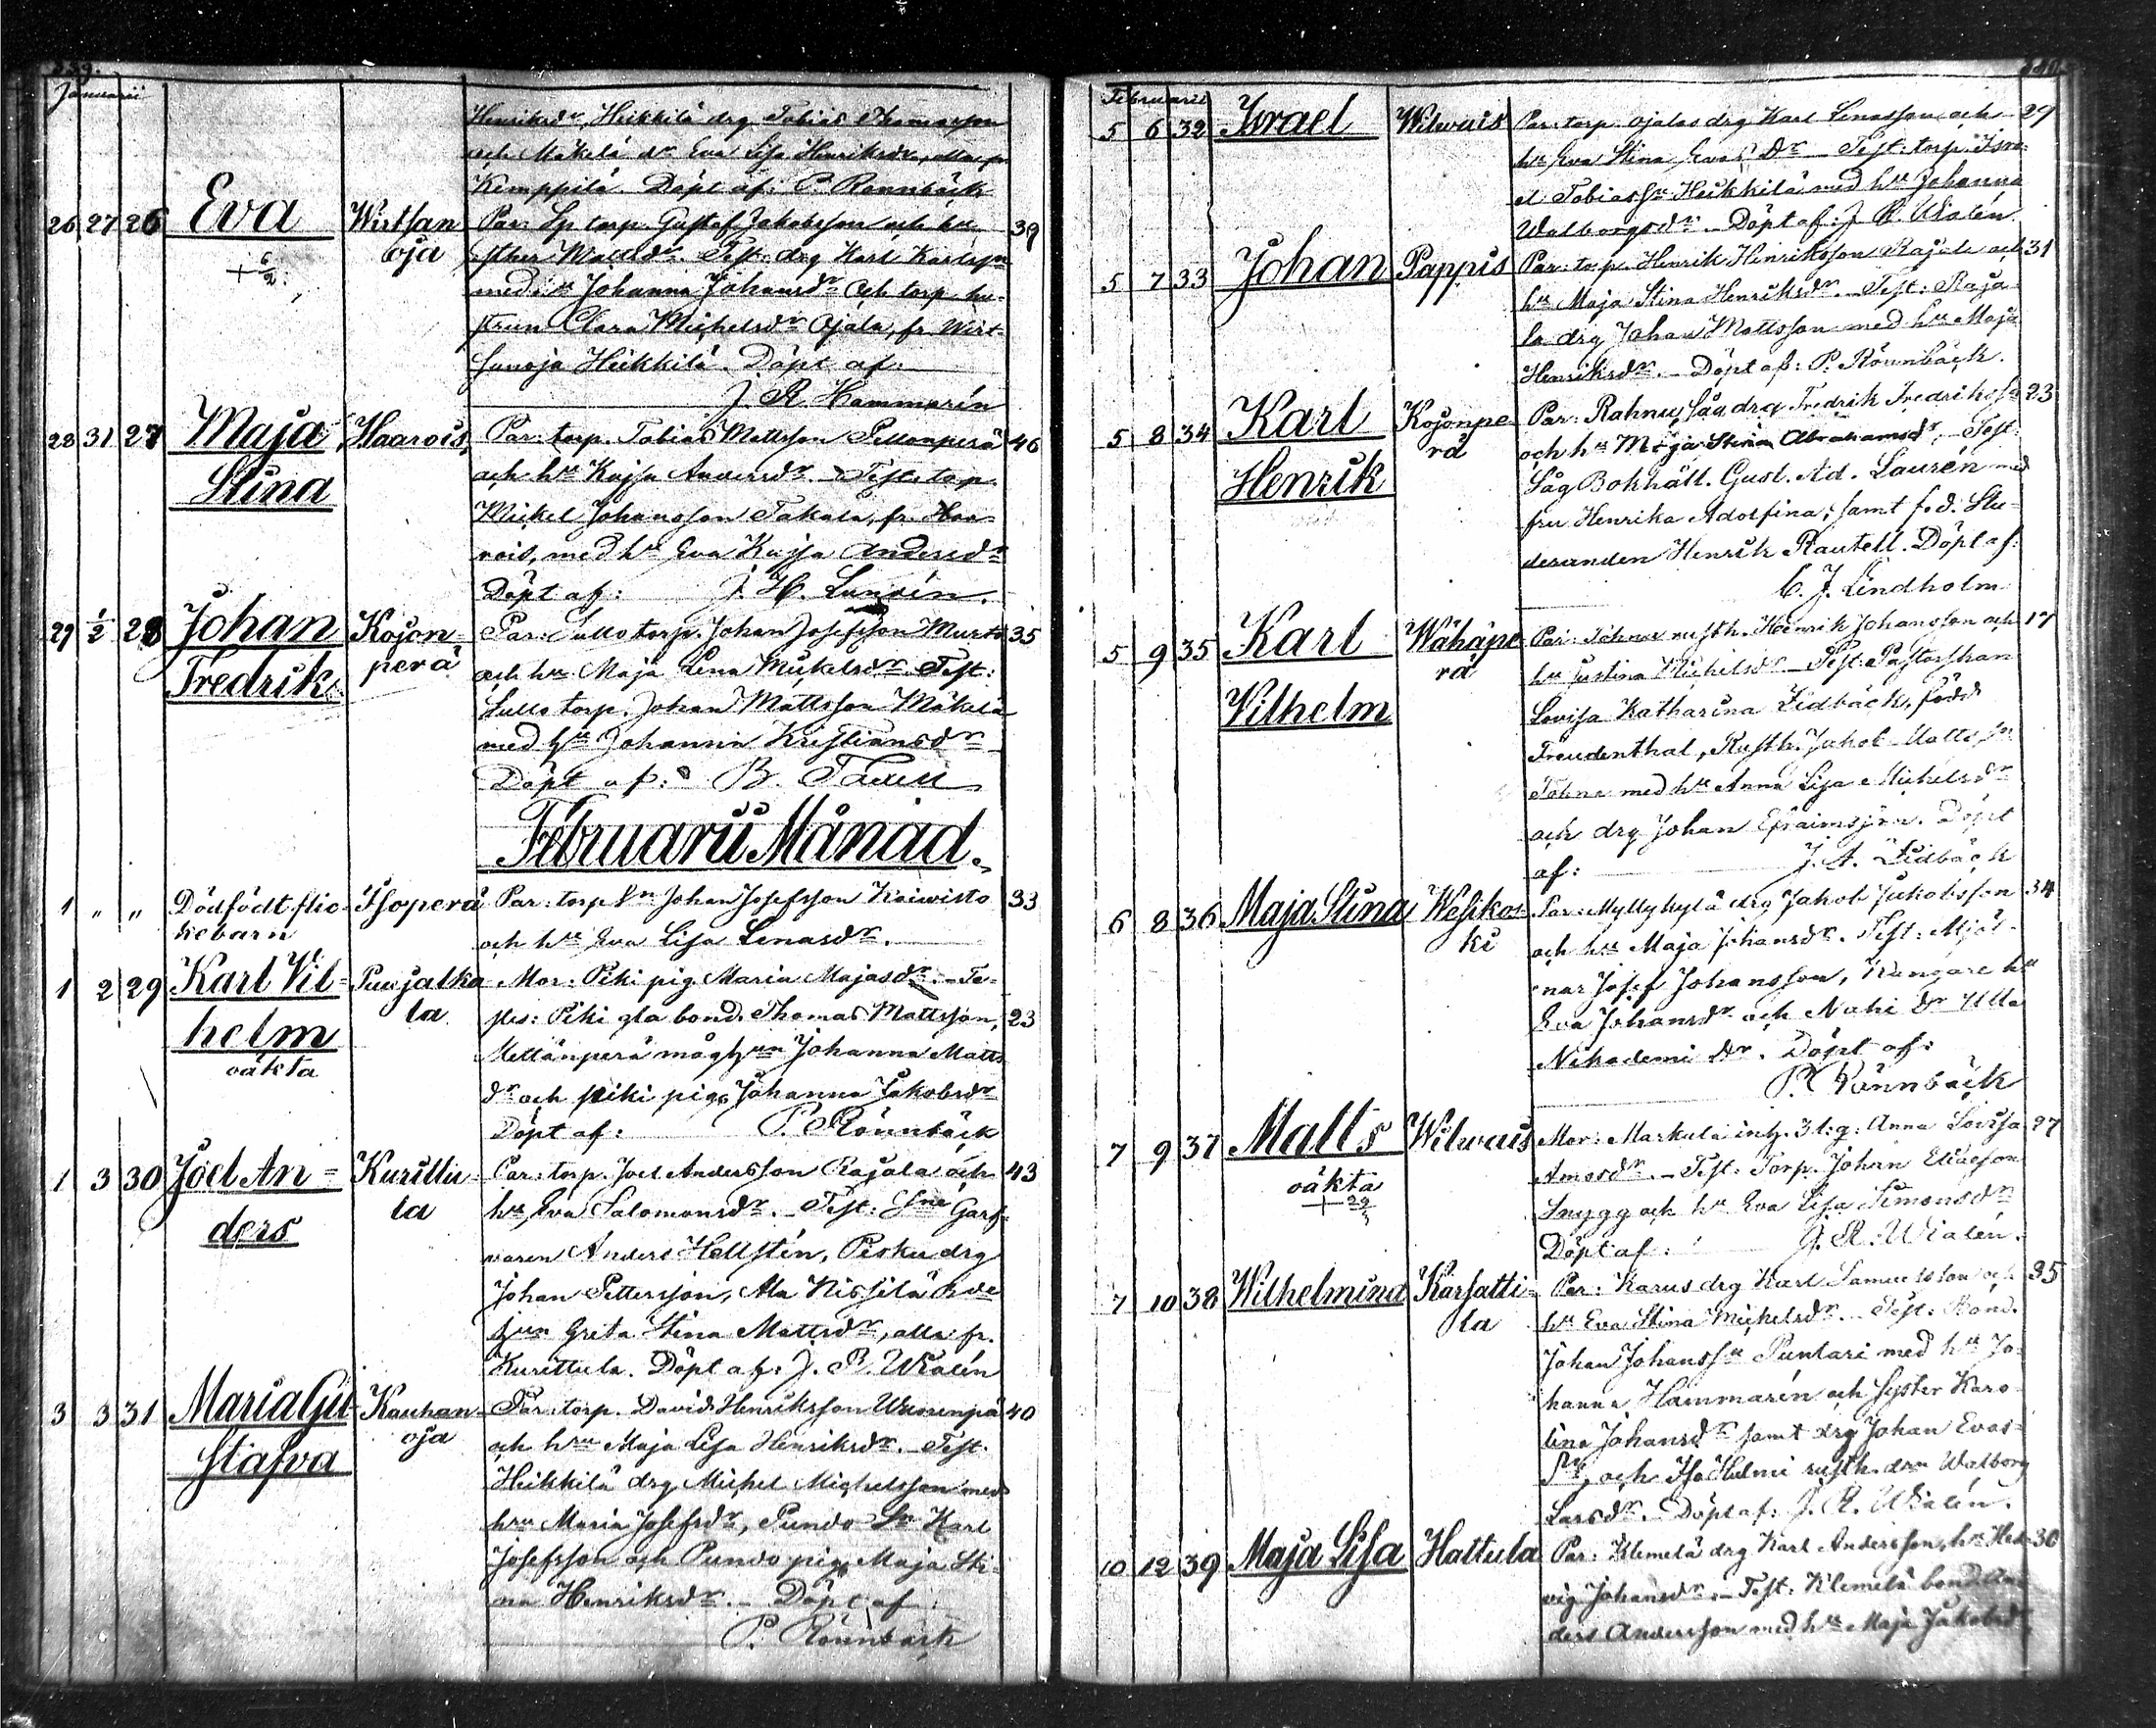 339.
Januarii
Henriksdr, Heikkilä drg Tobias Thomasson
och Mäkelä dr Eva Lisa Henriksdr, alla fr
Kemppilä. Döpt af: P. Rönnbäck
26 27 26 Eva Wirtsan Par: torp. Gustaf Jakobsson och hu 39
+ 6/2. oja Esther Mattsdr. Test: drg Karl Karlsson
med hu Johanna Johansdr och torp. hu-
strun Clara Michelsdr Ojala, fr. Wirt-
sanoja Heikkilä. Döpt af:
J. R. Hammarén
28 31 27 Maja Haarois, Par: torp. Tobias Mattsson Peltonperä 46
Stina och hu Kajsa Andersdr. Test. torp
Mickel Johansson Takala, fr. Haa-
rois, med hu Eva Kajsa Andersdr
Döpt af: J. H. Lunden.
29 1/2 28 Johan Kojon- Par: Sullo torp. Johan Josefsson Murto 35
Fredrik perä och hu Maja Lena Mickelsdr. Test:
Sullo torp. Johan Mattsson Mäkelä
med hu Johanna Kristiansdr
Döpt af: B.
Februarii Månad.
1 " " Dödfödt flic- Isoperä Par: torp. sn Johan Josefsson Koiwisto 33
kebarn och hu Eva Lisa Lenasdr.
1 2 29 Karl Vil- Puujalka Mor: Piki pig. Maria Majasdr. Te-
helm la stes: Piki gla bond. Thomas Mattsson, 23
oäkta Mellänperä måghun Johanna Matts
dr och piki pig. Johanna Jakobsdr
Döpt af: P. Rönnbäck
1 3 30 Joel An- Kurittu- Par: torp. Joel Andersson Rajala och 43
ders la hu Eva Salomonsdr. Test: Garf-
varen Anders Hellstén, Pesku drg
Johan Pettersson, Ala Nissilä
hun Greta Stina Mattsdr, alla fr.
Kurittula. Döpt af: J. R. Wialén
3 3 31 Maria Gu- Kauhan- Par: torp. David Henriksson Wuorenpä 40
stafva oja och hru Maja Lisa Henriksdr. Test.
Heikkilä drg Michel Michelsson med
hru Maria Josefsdr, Pundo Sn Karl
Josefsson och Pundo pig. Maja Sti-
na Henriksdr. Döpt af:
P. Rönnbäck
340.
Februarii
5 6 32 Israel Wilwais Par: torp. Ojalas drg Karl Lenasson och 29
hu Eva Stina Evas Dr. Test: torp. Isra-
el Tobiass. Heikkilä med hu Johanna
Walborgsdr. Döpt af: J. R. Wialén
5 7 33 Johan Pappis Par: torp. Henrik Henriksson Rajala och 31
hu Maja Stina Henriksdr. Test: Raja-
la drg Johan Mattsson med hu Maja
Henriksdr. Döpt af: P. Rönnbäck.
5 8 34 Karl Kojonpe Par: Rahnu såg drg Fredrik Fredriksson 23
Henrik rä och hu Maja Stina Abrahamsdr. Test:
Såg Bokhåll. Gust. Ad. Laurén med
fru Henrika Adolfina, samt f.d. Stu-
deranden Henrik Rautell. Döpt af:
C. J. Lindholm
5 9 35 Karl Wähäpe Par: Töhne rusth. Henrik Johansson och 17
Vilhelm rä hu Justina Michelsdr. Test: Pastorskan
Lovisa Katharina Lidbäck, född
Freudenthal, Rusth. Jakob Mattsson
Töhne med hu Anna Lisa Michelsdr
och drg Johan Efraimsson. Döpt
af: J. A. Lidbäck
6 8 36 Maja Stina Wesikos- Par: Myllykylä drg Jakob Jakobsson 34
ki och hu Maja Johansdr. Test: Mjöl-
nar Josef Johansson, Kangare hu
Eva Johansdr och Nuhi Dr Ulla
Nikodemi Dr. Döpt af:
P. Rönnbäck
7 9 37 Matts Wilwais Mor: Markula inh. Anna Lovisa 27
oäkta Amosdr. Test: Torp. Johan Eliaeson
+ 29/3 Snygg och hu Eva Lisa Simonsdr
Döpt af: J. R. Wialén.
7 10 38 Wilhelmina Karsatti- Par: Karus drg Karl Samuelsson och 35
la hu Eva Stina Michelsdr. Test: Bond.
Johan Johanss. Puntari med hu Jo-
hanna Hammarén och syster Karo-
lina Johansdr samt drg Johan Evas-
sn, och Iso Helmi rusth. drn Walborg
Larsdr. Döpt af: J. R. Wialén.
10 12 39 Maja Lisa Hattula Par: Klemelä drg Karl Andersson, hu Hed- 30
vig Johansdr. Test: Klemelä bond. An-
ders Andersson med hu Maja Jakobsdr